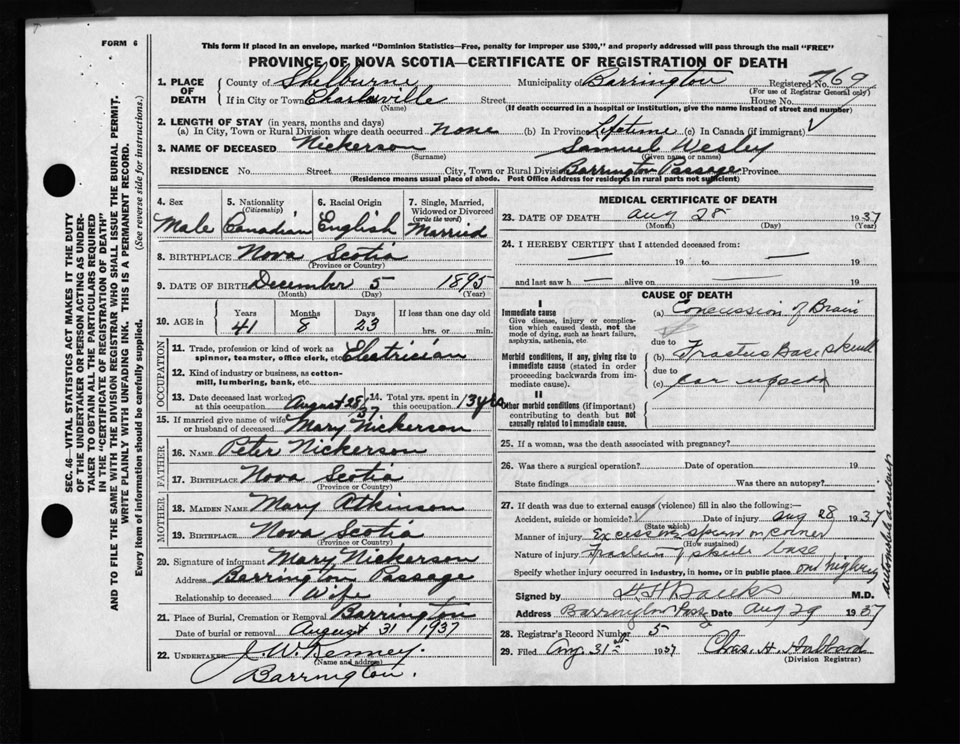 FORM 6
This form if placed in an envelope, marked "Dominion Statistics—Free, penalty for improper use $300," and properly addressed will pass through the mail "FREE"
PROVINCE OF NOVA SCOTIA—CERTIFICATE OF REGISTRATION OF DEATH
1. PLACE OF DEATH
County of Shelburne Municipality of Barrington Registered No. 769
(For use of Registrar General only)
If in City or Town Charlesville Street House No.
(Name) (If death occurred in a hospital or institution, give the name instead of street and number)
2. LENGTH OF STAY (in years, months and days)
(a) In City, Town or Rural Division where death occurred none (b) In Province Lifetime (c) In Canada (if immigrant)
3. NAME OF DECEASED Nickerson Samuel Wesley
(Surname) (Given name or names)
RESIDENCE No. Street City, Town or Rural Division Barrington Passage Province
(Residence means usual place of abode. Post Office Address for residents in rural parts not sufficient)
4. Sex
Male
5. Nationality
(Citizenship)
Canadian
6. Racial Origin
English
7. Single, Married, Widowed or Divorced
(write the word)
Married
8. BIRTHPLACE Nova Scotia
(Province or Country)
9. DATE OF BIRTH December 5 1895
(Month) (Day) (Year)
10. AGE in
Years 41
Months 8
Days 23
If less than one day old
hrs. or min.
OCCUPATION
11. Trade, profession or kind of work as spinner, teamster, office clerk, etc. Electrician
12. Kind of industry or business, as cotton-mill, lumbering, bank, etc.
13. Date deceased last worked at this occupation August 28/37
14. Total yrs. spent in this occupation 13 yrs
15. If married give name of wife or husband of deceased Mary Nickerson
FATHER
16. NAME Peter Nickerson
17. BIRTHPLACE Nova Scotia
(Province or Country)
MOTHER
18. MAIDEN NAME Mary Atkinson
19. BIRTHPLACE Nova Scotia
(Province or Country)
20. Signature of informant Mary Nickerson
Address Barrington Passage
Relationship to deceased Wife
21. Place of Burial, Cremation or Removal Barrington
Date of burial or removal August 31 1937
22. UNDERTAKER J. W. Kenney.
(Name and address)
Barrington.
MEDICAL CERTIFICATE OF DEATH
23. DATE OF DEATH Aug 28 1937
(Month) (Day) (Year)
24. I HEREBY CERTIFY that I attended deceased from:
— 19 to — 19
and last saw h — alive on — 19
CAUSE OF DEATH
I
Immediate cause
Give disease, injury or complication which caused death, not the mode of dying, such as heart failure, asphyxia, asthenia, etc.
(a) Concussion of Brain
due to
Morbid conditions, if any, giving rise to immediate cause (stated in order proceeding backwards from immediate cause).
(b) Fractus Base skull
due to
(c) car upset
II
Other morbid conditions (if important) contributing to death but not causally related to immediate cause.
25. If a woman, was the death associated with pregnancy?
26. Was there a surgical operation? Date of operation 19
State findings Was there an autopsy?
27. If death was due to external causes (violence) fill in also the following:—
Accident, suicide or homicide? Date of injury Aug 28 1937
(State which)
Manner of injury Excessive speed on corner
(How sustained)
Nature of injury Fracture of skull base
Specify whether injury occurred in industry, in home, or in public place on highway
Signed by M.D.
Address Barrington Pass Date Aug 29 1937
28. Registrar's Record Number 5
29. Filed Aug 31st 1937 Chas. H. Hubbard
(Division Registrar)
SEC. 46—VITAL STATISTICS ACT MAKES IT THE DUTY
OF THE UNDERTAKER OR PERSON ACTING AS UNDERTAKER TO OBTAIN ALL THE PARTICULARS REQUIRED
IN THE "CERTIFICATE OF REGISTRATION OF DEATH"
AND TO FILE THE SAME WITH THE DIVISION REGISTRAR WHO SHALL ISSUE THE BURIAL PERMIT.
WRITE PLAINLY WITH UNFADING INK. THIS IS A PERMANENT RECORD.
Every item of information should be carefully supplied. (See reverse side for instructions.)